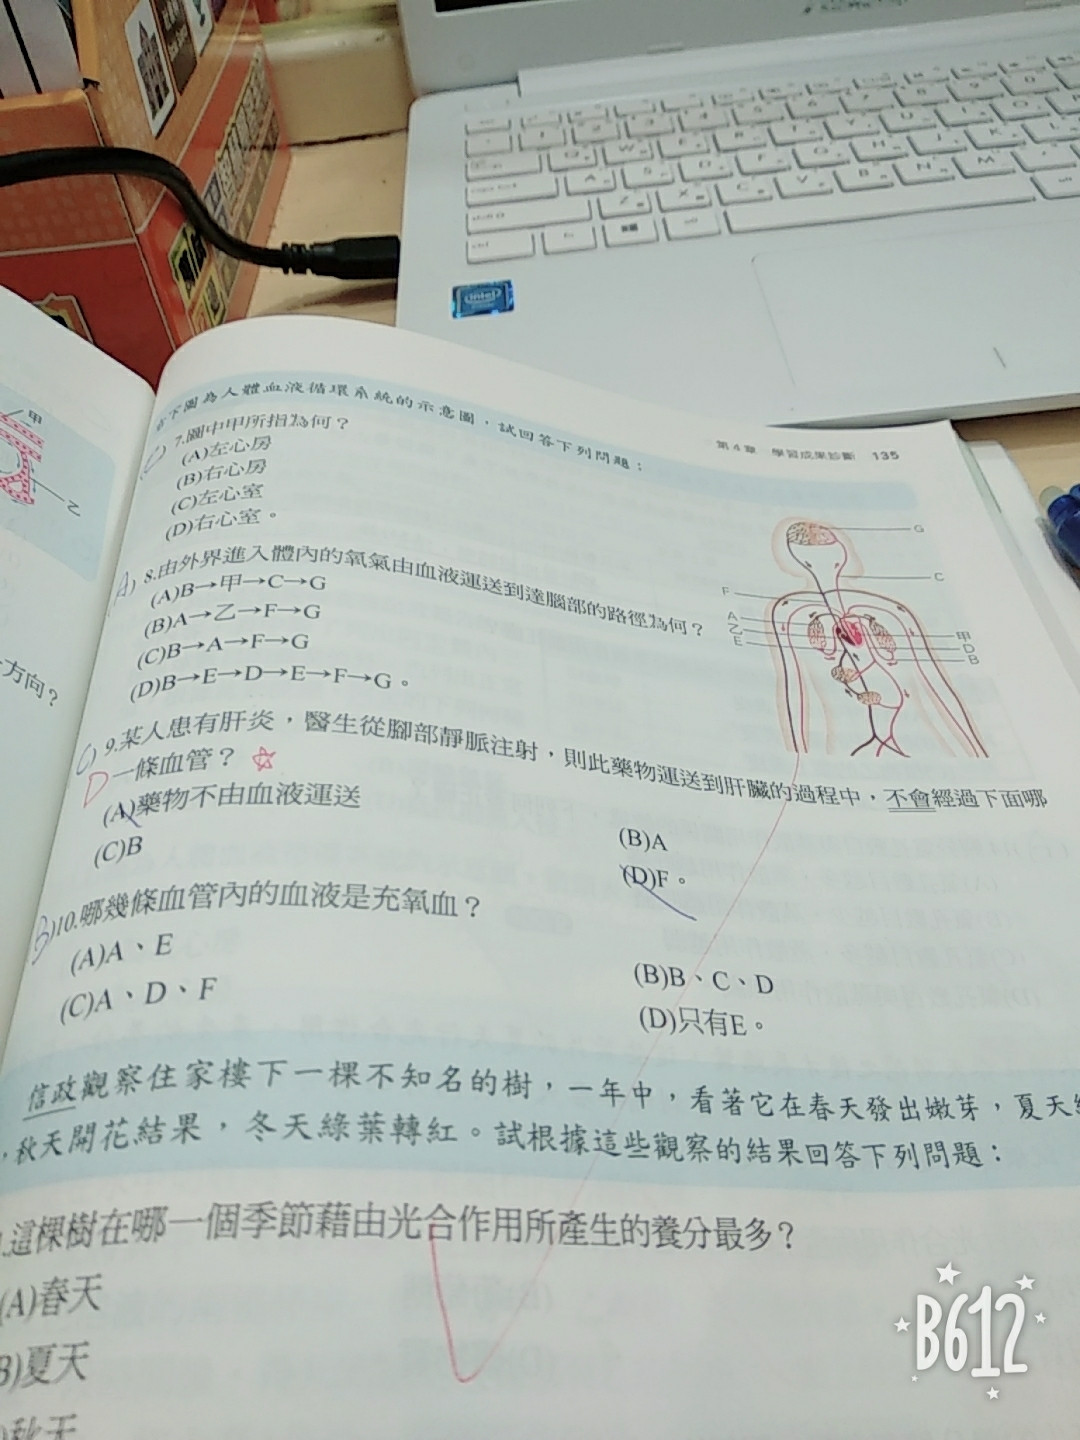 intel
甲
乙
方向？
第4章 學習成果診斷 135
下圖為人體血液循環系統的示意圖，試回答下列問題：
(C) 7.圖中甲所指為何？
(A)左心房
(B)右心房
(C)左心室
(D)右心室。
(A) 8.由外界進入體內的氧氣由血液運送到達腦部的路徑為何？
(A)B→甲→C→G
(B)A→乙→F→G
(C)B→A→F→G
(D)B→E→D→E→F→G。
G
C
F
A
乙
E
甲
D
B
(C) 9.某人患有肝炎，醫生從腳部靜脈注射，則此藥物運送到肝臟的過程中，不會經過下面哪
D 一條血管？
(A)藥物不由血液運送
(B)A
(C)B
(D)F。
(B)10.哪幾條血管內的血液是充氧血？
(A)A、E
(B)B、C、D
(C)A、D、F
(D)只有E。
信政觀察住家樓下一棵不知名的樹，一年中，看著它在春天發出嫩芽，夏天
，秋天開花結果，冬天綠葉轉紅。試根據這些觀察的結果回答下列問題：
.這棵樹在哪一個季節藉由光合作用所產生的養分最多？
(A)春天
B)夏天
)秋天
B612